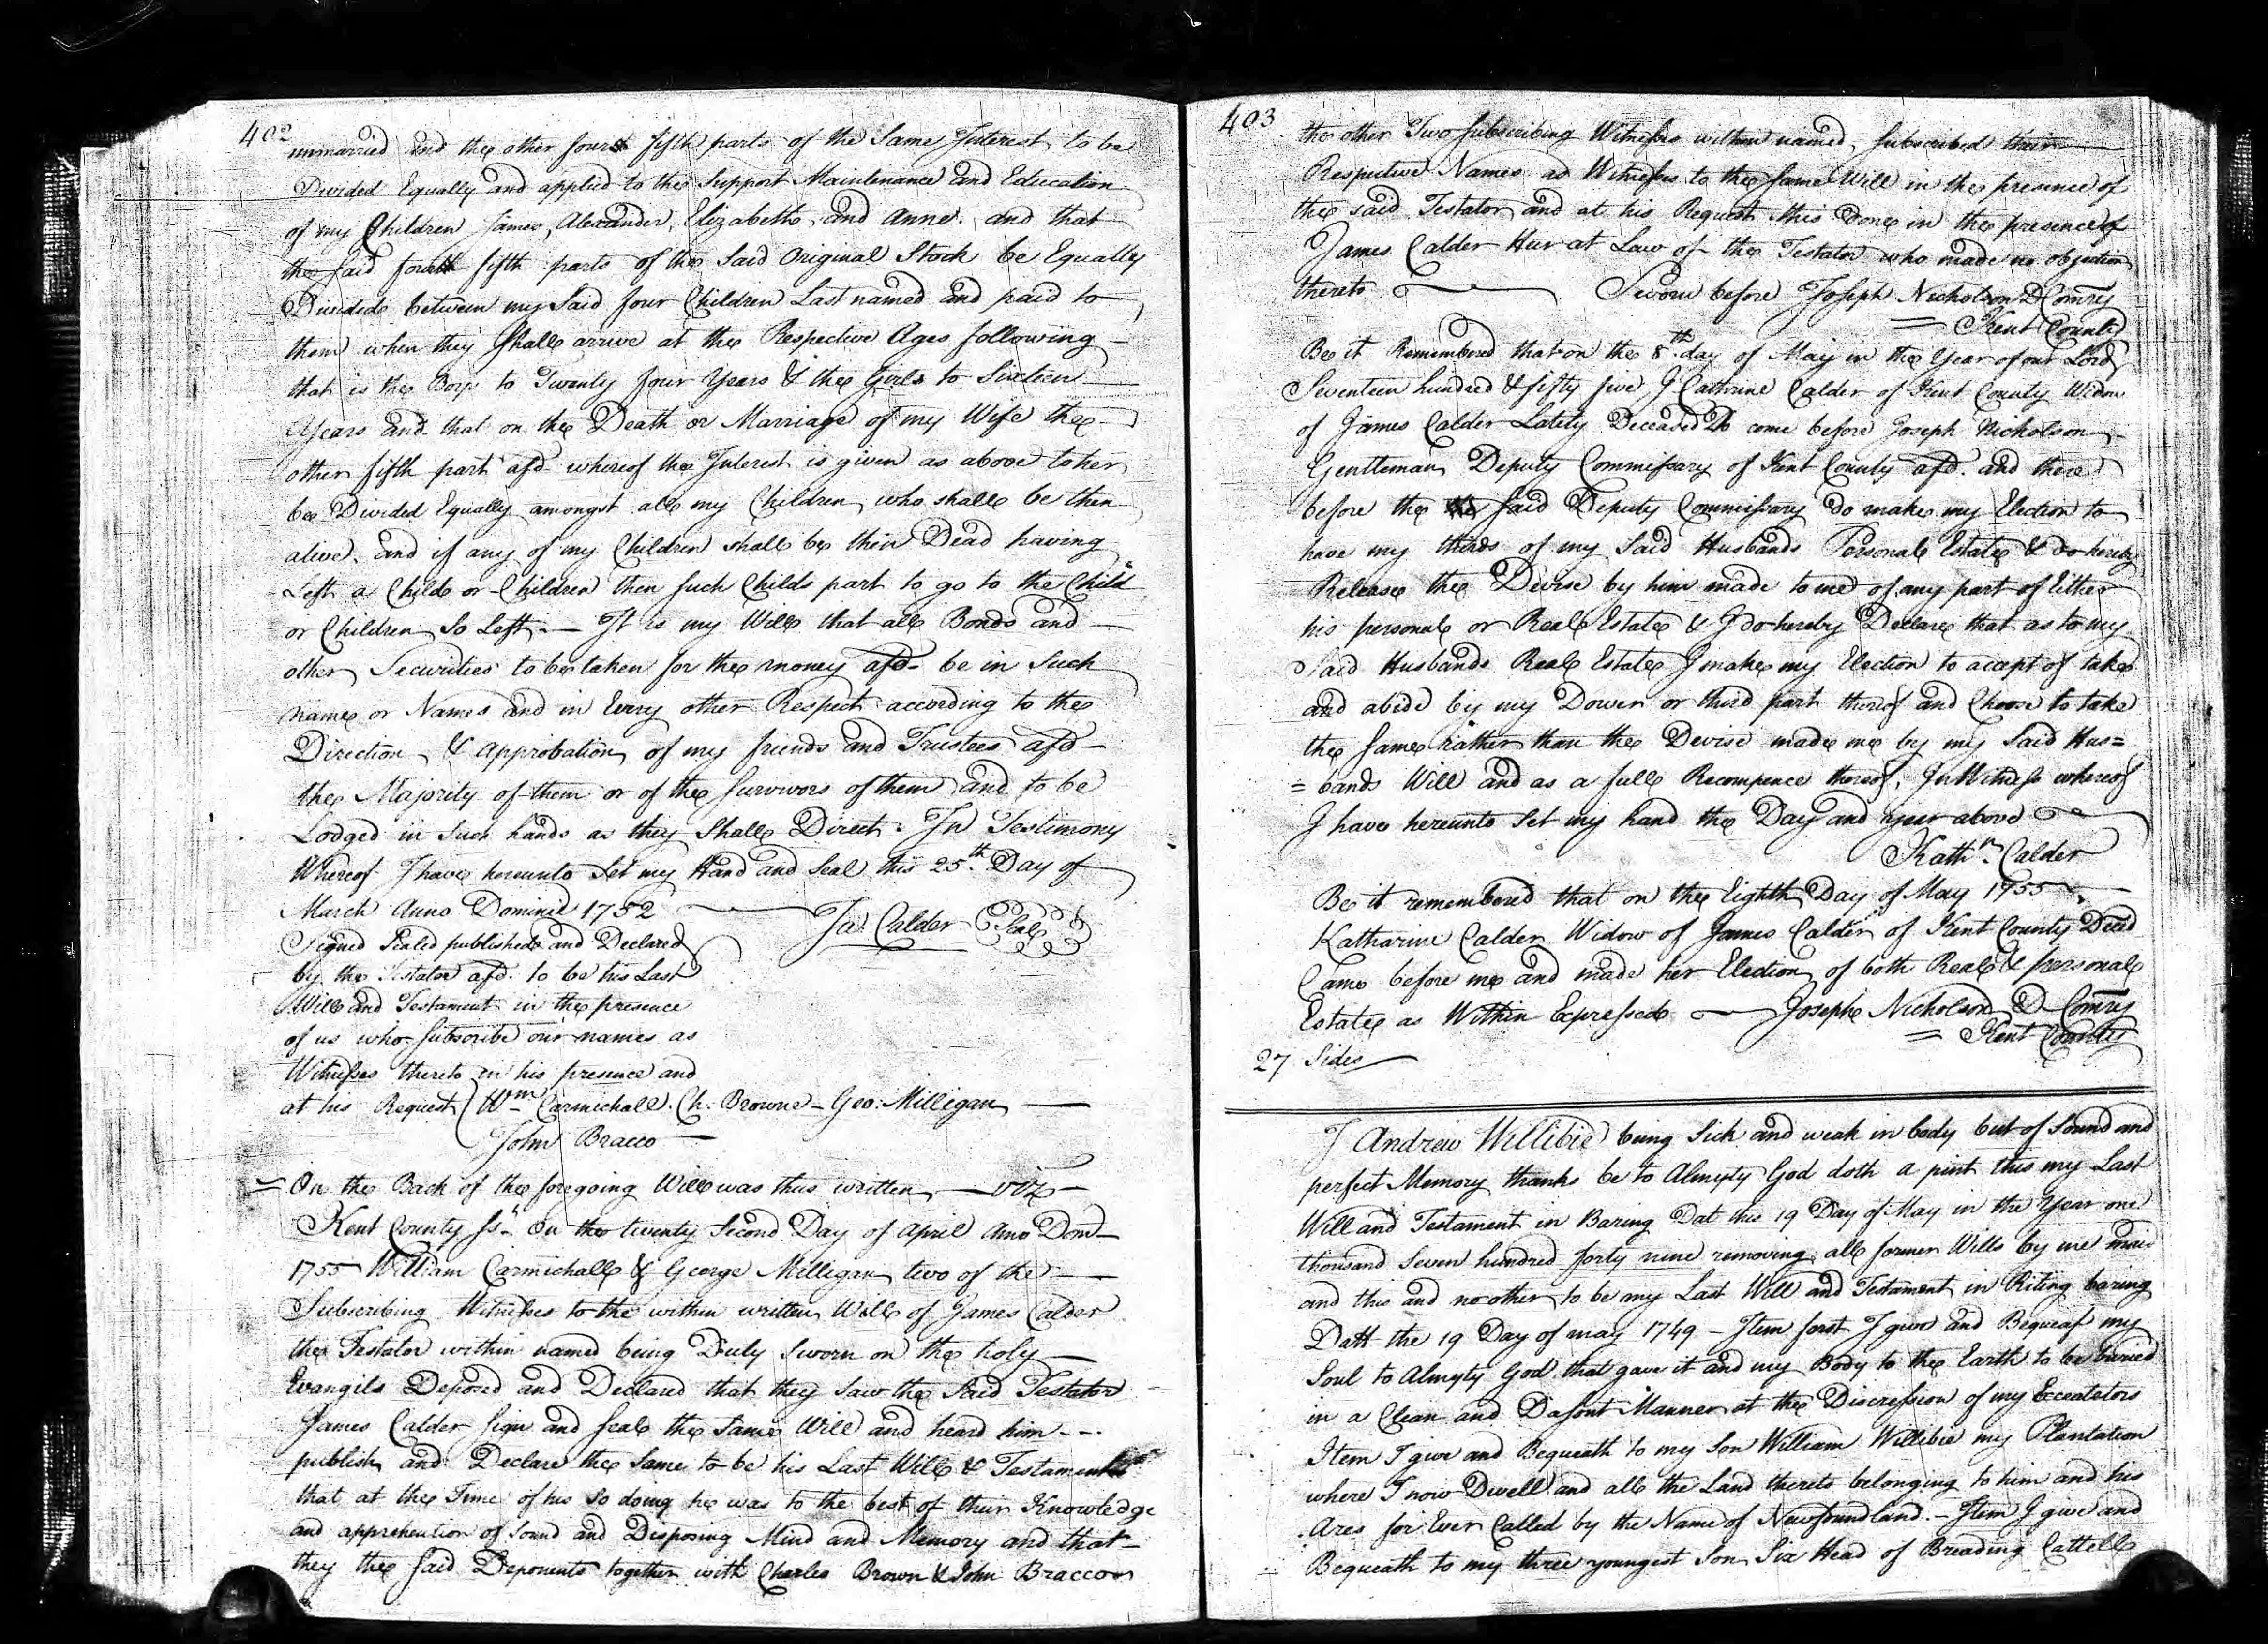 402
unmarried and the other fourth fifth parts of the Same Interest to be
Divided Equally and applied to the Support Maintenance and Education
of my Children James, Alexander, Elizabeth and Anne. and that
the said fourth fifth parts of the Said Original Stock be Equally
Divided between my Said four Children Last named and paid to
them when they Shall arrive at the Respective Ages following
that is the Boys to Twenty four Years & the Girls to Sixteen
Years and that on the Death or Marriage of my Wife the
other fifth part afd. whereof the Interest is given as above to her
be Divided Equally amongst all my Children who shall be then
alive. and if any of my Children shall be then Dead having
Left a Child or Children then such Childs part to go to the Child
or Children So Left — It is my Will that all Bonds and
other Securities to be taken for the money afd. be in Such
name or Names and in Every other Respect according to the
Direction & approbation of my friends and Trustees afd
the Majority of them or of the Survivors of them and to be
Lodged in Such hands as they Shall Direct. In Testimony
Whereof I have hereunto Set my Hand and Seal this 25th. Day of
March Anno Domini 1752 — Ja: Calder Seal
Signed Sealed published and Declared
by the Testator afd. to be his Last
Will and Testament in the presence
of us who Subscribe our names as
Witnesses thereto in his presence and
at his Request Wm Carmichall. Ch: Browne - Geo: Milligan
John Bracco
On the Back of the foregoing Will was thus written — viz
Kent County ss. On the twenty Second Day of April Anno Dom
1755 William Carmichall & George Milligan two of the
Subscribing Witnesses to the within written Will of James Calder
the Testator within named being Duly Sworn on the holy
Evangils Deposed and Declared that they Saw the Said Testator
James Calder Sign and Seal the Same Will and heard him
publish and Declare the Same to be his Last Will & Testament
that at the Time of his So doing he was to the best of their Knowledge
and apprehention of Sound and Disposing Mind and Memory and that
they the Said Deponents together with Charles Brown & John Bracco
403
the other Two Subscribing Witnesses within named, Subscribed their
Respective Names as Witnesses to the Same Will in the presence of
the said Testator and at his Request this Done in the presence of
James Calder Heir at Law of the Testator who made no objection
thereto — Sworn before Joseph Nicholson D Comry
= Kent County
Be it Remembered that on the 8th. day of May in the Year of our Lord
Seventeen hundred & fifty five I Cathrine Calder of Kent County Widow
of James Calder Lately Deceased Do come before Joseph Nicholson
Gentleman Deputy Commissary of Kent County afd. and there
before the Said Deputy Commissary do make my Election to
have my thirds of my Said Husbands Personal Estate & do hereby
Release the Devise by him made to me of any part of Either
his personal or Real Estate & I do hereby Declare that as to my
Said Husbands Real Estate I make my Election to accept of take
and abide by my Dower or third part thereof and Choose to take
the Same rather than the Devise made me by my Said Hus=
=bands Will and as a full Recompence thereof. In Witness whereof
I have hereunto Set my hand the Day and year above
Kathn. Calder
Be it remembered that on the Eighth Day of May 1755
Katharine Calder Widow of James Calder of Kent County Deced
Came before me and made her Election of both Real & personal
Estate as Within Expressed — Joseph Nicholson D Comry
= Kent County
27 Sides
I Andrew Willibie being Sick and weak in body but of Sound and
perfect Memory thanks be to Almyty God doth a pint this my Last
Will and Testament in Baring Dat this 19 Day of May in the Year one
thousand Seven hundred forty nine removing all former Wills by me
and this and no other to be my Last Will and Testament in Riting baring
Datt the 19 Day of may 1749 - Item forst I give and Bequeaf my
Soul to Almyty God that gave it and my Body to the Earth to be buried
in a Clean and Dasont Manner at the Discression of my Exceatators
Item I give and Bequeath to my Son William Willibie my Plantation
where I now Dwell and all the Land thereto belonging to him and his
Ares for Ever Called by the Name of Newfoundland. - Item I give and
Bequeath to my three youngest Son Six Head of Breading Cattell